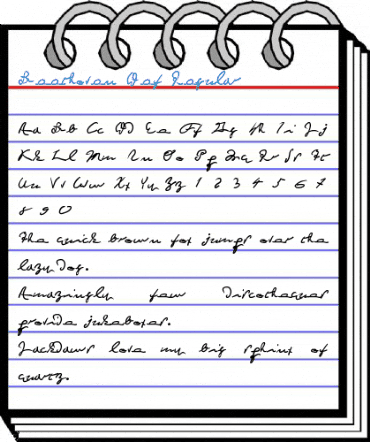 Beethoven Opf Regular
Aa Bb Cc Dd Ee Ff Gg Hh Ii Jj
Kk Ll Mm Nn Oo Pp Qq Rr Ss Tt
Uu Vv Ww Xx Yy Zz 1 2 3 4 5 6 7
8 9 0
The quick brown fox jumps over the
lazy dog.
Amazingly few discotheques
provide jukeboxes.
Jackdaws love my big sphinx of
quartz.